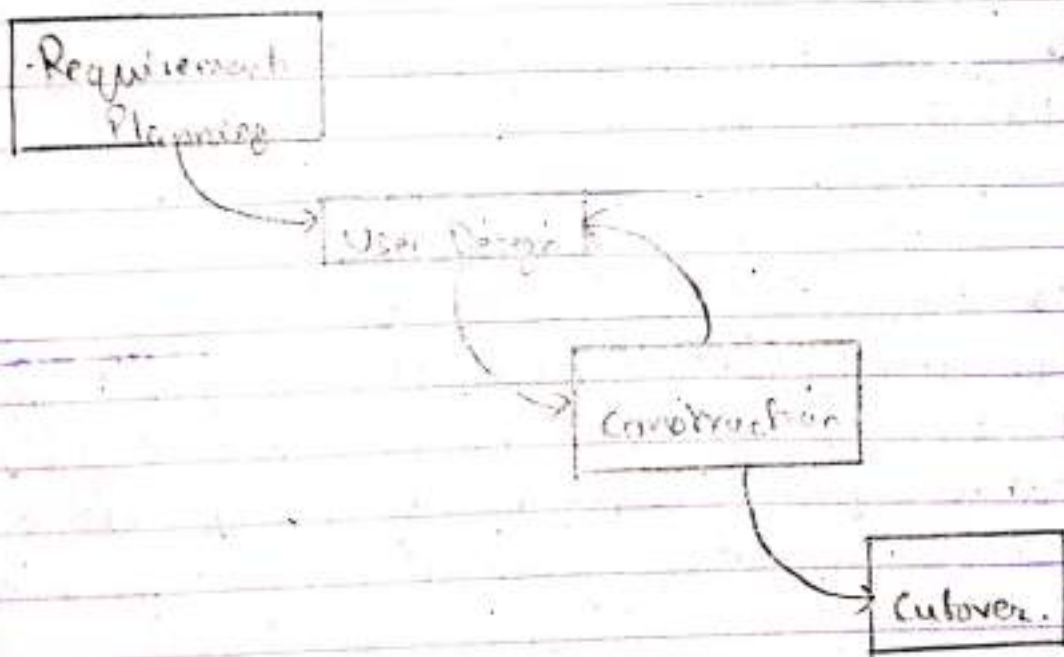 Requirement
Planning
User Design
Construction
Cutover.